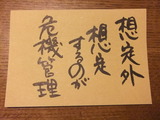 想定外
想定
するのが
危機管理